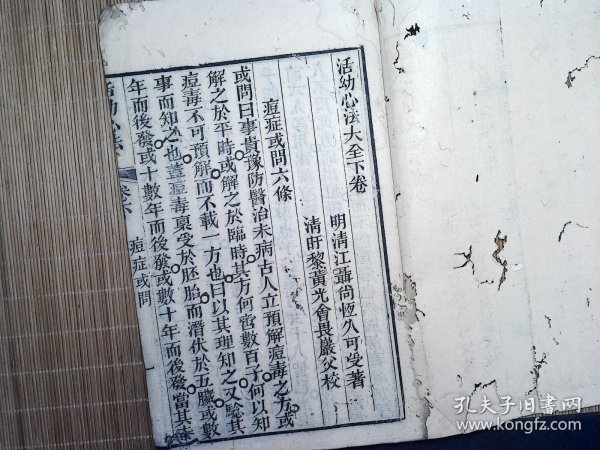 活幼心法大全下卷
明清江聶尙恆久可受著
清旴黎黃光會畏巖父校
痘症或問六條
或問曰事貴豫防醫治未病古人立預解痘毒之方或
解之於平時或解之於臨時其方何啻數百子何以知
痘毒不可預解而不載一方也曰以其理知之又驗其
事而知之也蓋痘毒禀受於胚胎而潛伏於五臟或數
年而後發或十數年而後發或數十年而後發當其未
活幼心法
卷六
痘症或問
一
孔夫子旧书网
www.kongfz.com